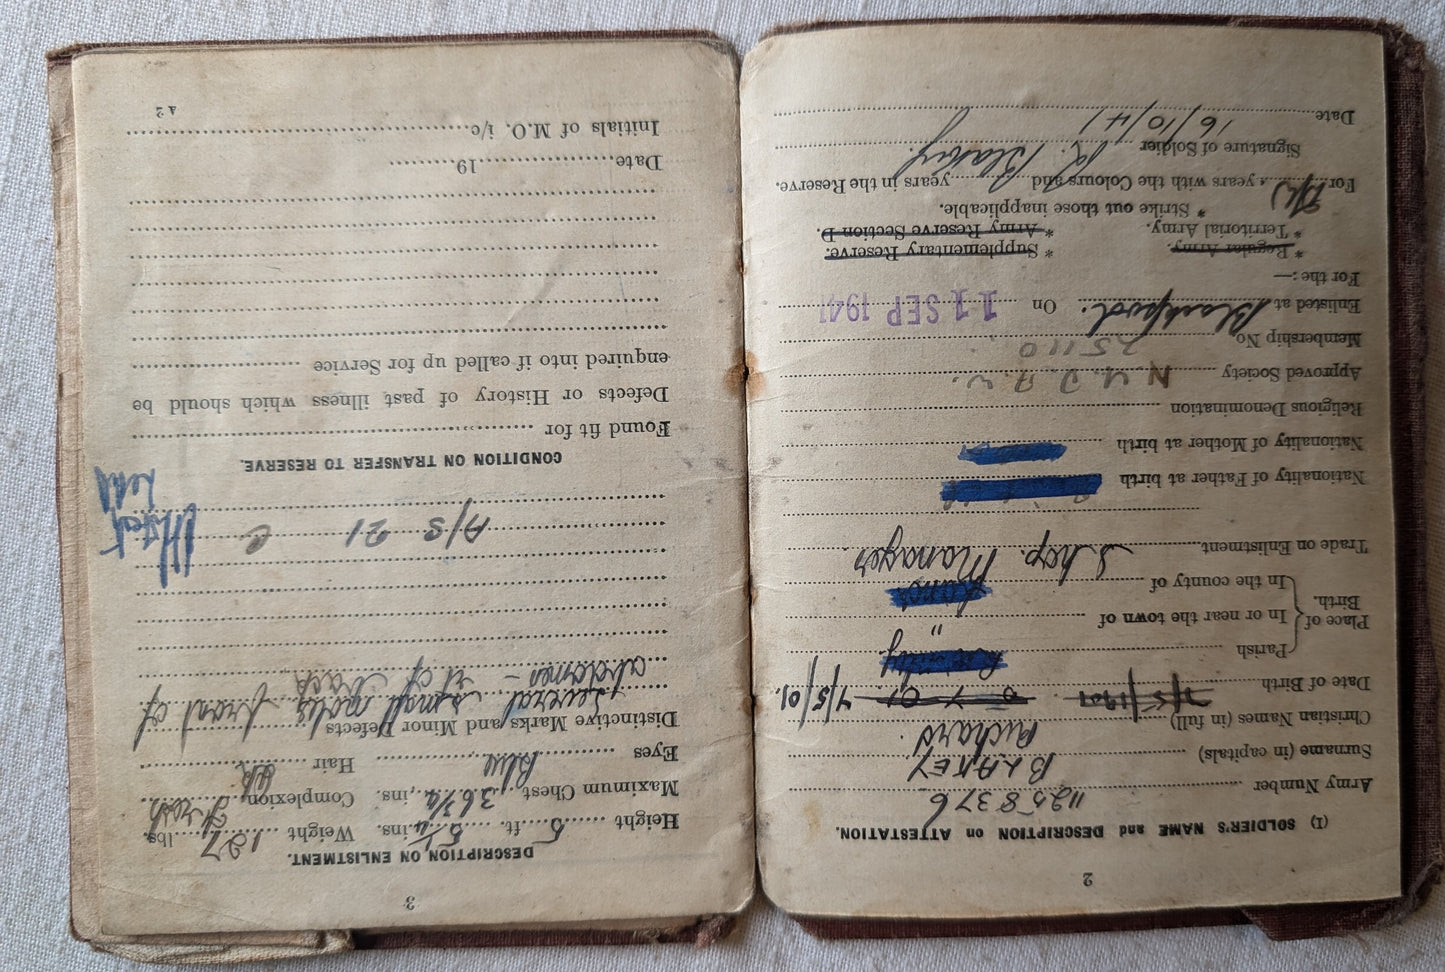 2
(I) SOLDIER'S NAME and DESCRIPTION on ATTESTATION.
Army Number 11258376
Surname (in capitals) BLAKEY
Christian Names (in full) Richard.
Date of Birth 7/5/1901 7/5/01.
Place of Birth. Parish
In or near the town of "
In the county of
Trade on Enlistment Shop. Manager.
Nationality of Father at birth
Nationality of Mother at birth
Religious Denomination
Approved Society N.U.D.A.W.
Membership No. 25110
Enlisted at Blackpool. On 11 SEP 1941
For the :—
* Regular Army. * Supplementary Reserve.
* Territorial Army. * Army Reserve Section D.
* Strike out those inapplicable.
For years with the Colours and years in the Reserve.
Signature of Soldier R. Blakey.
Date 16/10/41
3
DESCRIPTION ON ENLISTMENT.
Height 5 ft. 5 1/4 ins. Weight 127 lbs.
Maximum Chest 36 3/4 ins. Complexion Fresh
Eyes Blue Hair
Distinctive Marks and Minor Defects
Several small moles front of
abdomen - of back
A/S 21 C
CONDITION ON TRANSFER TO RESERVE.
Found fit for
Defects or History of past illness which should be
enquired into if called up for Service
Date, 19
Initials of M.O. i/c
A 2